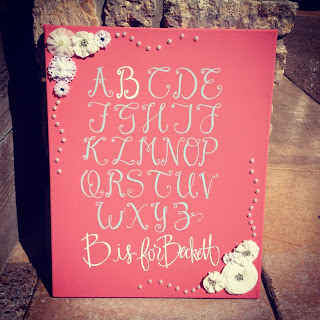 ABCDE
FGHIJ
KLMNOP
QRSTUV
WXYZ
B is for Beckett